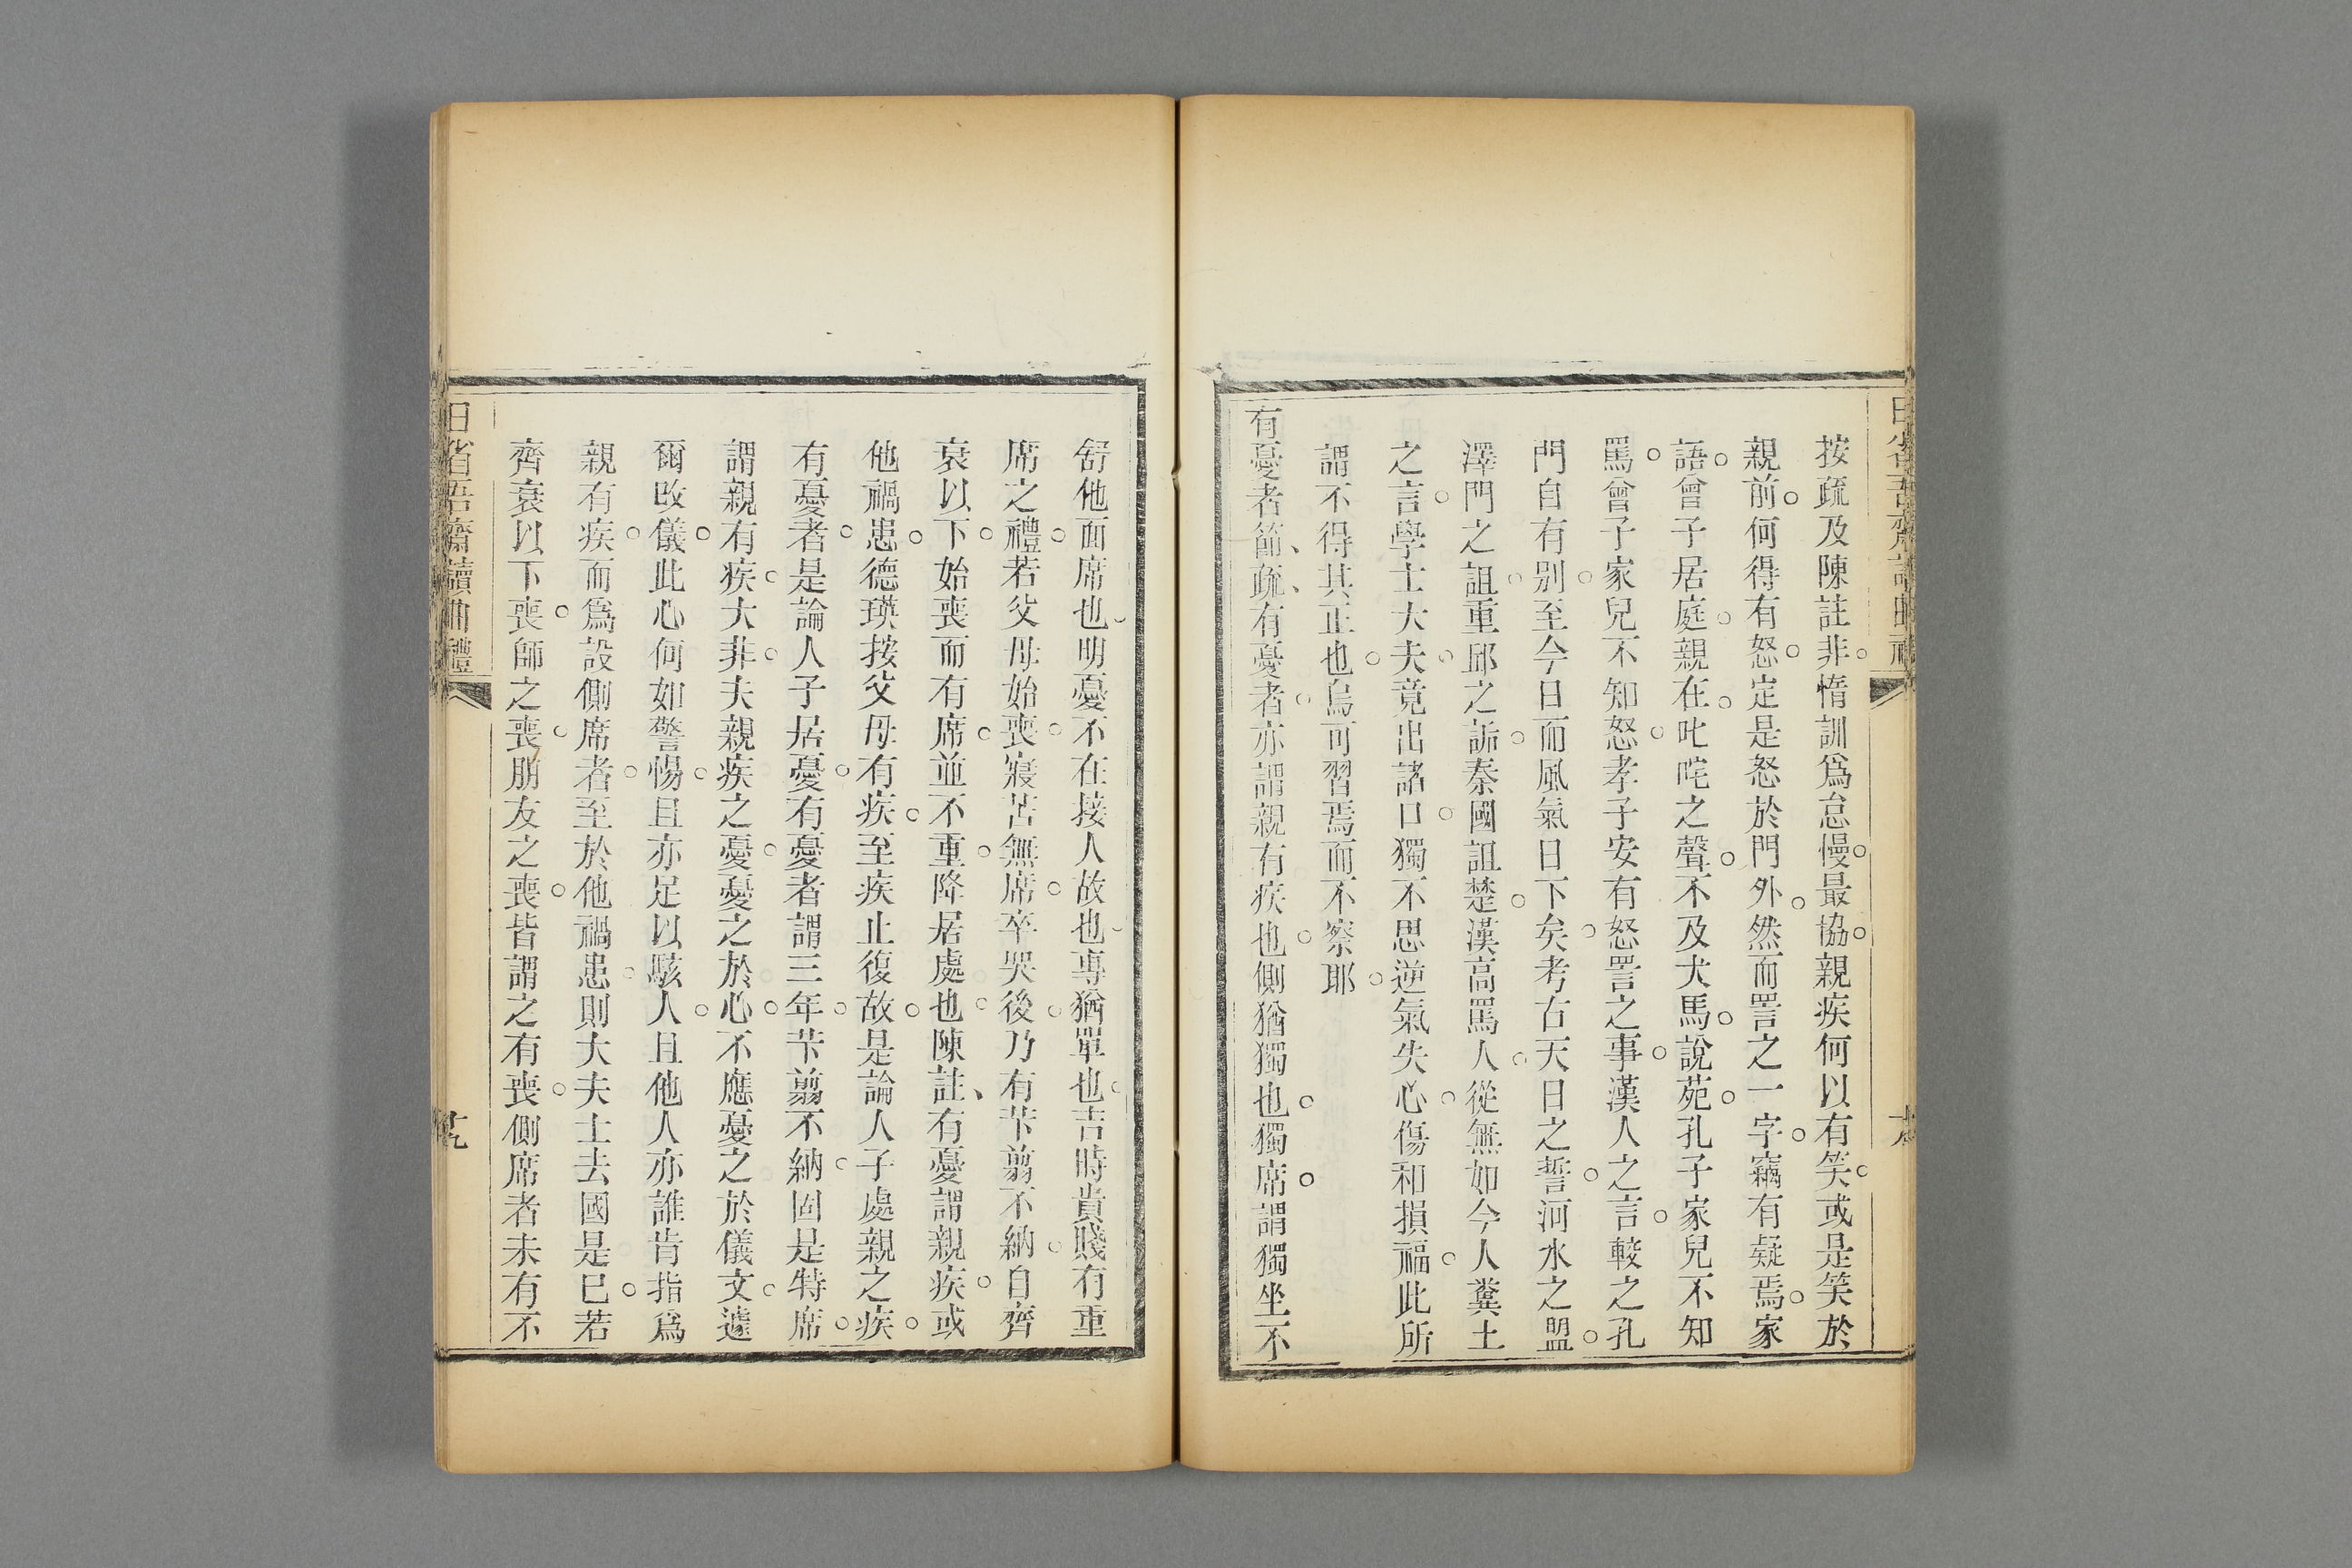 按疏及陳註非惰訓爲怠慢最協親疾何以有笑或是笑於
親前何得有怒定是怒於門外然而詈之一字竊有疑焉家
語曾子居庭親在叱咤之聲不及犬馬說苑孔子家兒不知
罵曾子家兒不知怒孝子安有怒詈之事漢人之言較之孔
門自有別至今日而風氣日下矣考古天日之誓河水之盟
澤門之詛重邱之詬秦國詛楚漢高罵人從無如今人糞土
之言學士大夫竟出諸口獨不思逆氣失心傷和損福此所
謂不得其正也烏可習焉而不察耶
有憂者節疏有憂者亦謂親有疾也側猶獨也獨席謂獨坐不
舒他面席也明憂不在接人故也專猶單也吉時貴賤有重
席之禮若父母始喪寢苫無席卒哭後乃有芐翦不納自齊
衰以下始喪而有席並不重降居處也陳註有憂謂親疾或
他禍患德瑛按父母有疾至疾止復故是論人子處親之疾
有憂者是論人子居憂有憂者謂三年芐翦不納固是特席
謂親有疾大非夫親疾之憂憂之於心不應憂之於儀文遽
爾改儀此心何如警惕且亦足以駭人且他人亦誰肯指爲
親有疾而爲設側席者至於他禍患則大夫士去國是已若
齊衰以下喪師之喪朋友之喪皆謂之有喪側席者未有不
日省吾齋讀曲禮
十九